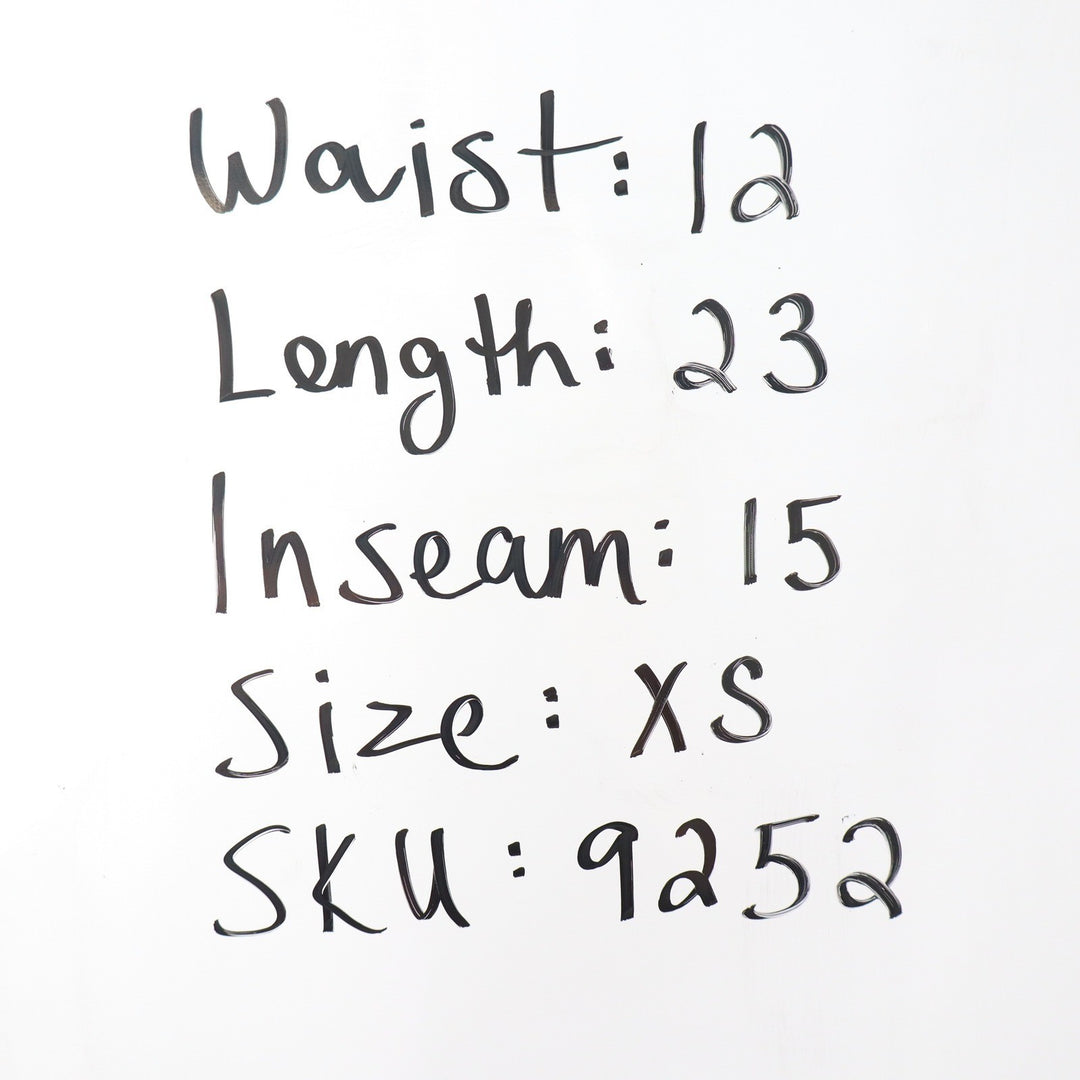 Waist: 12
Length: 23
Inseam: 15
Size: XS
SKU: 9252